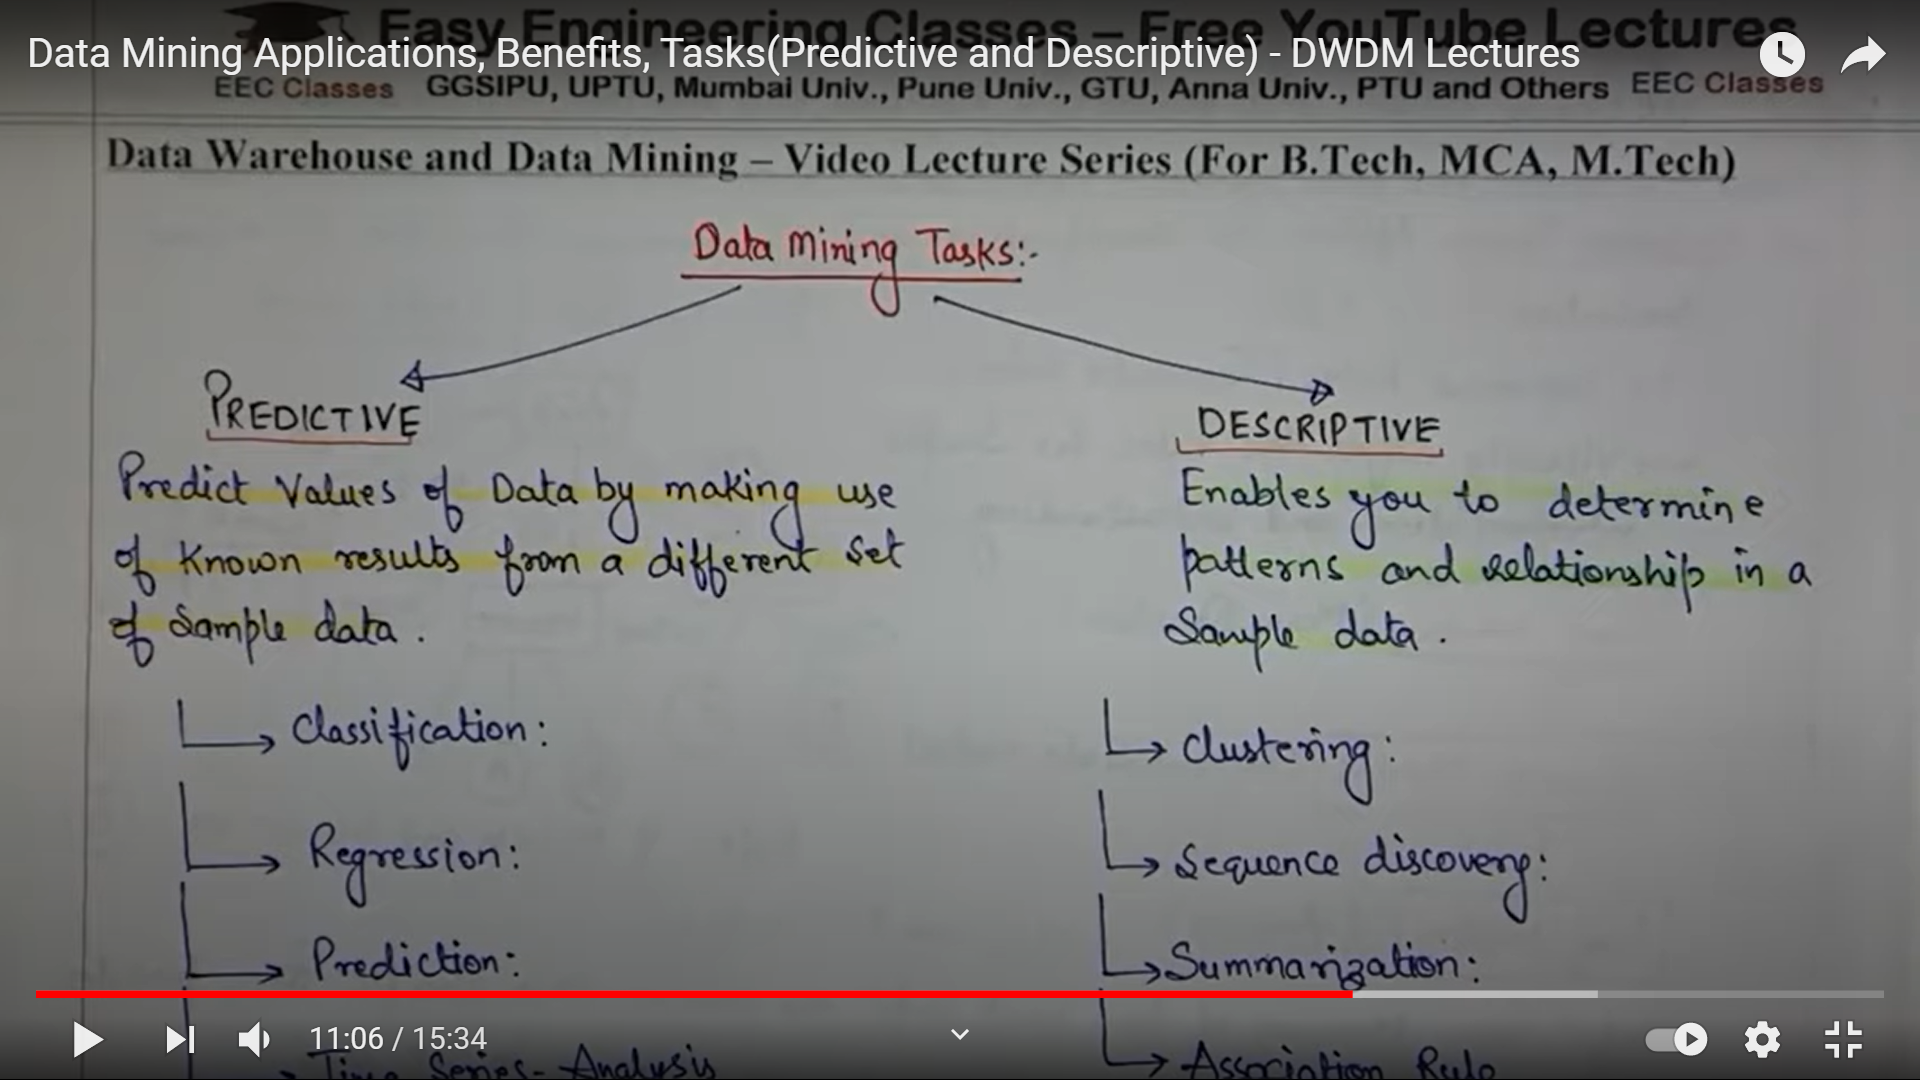 Easy Engineering Classes – Free YouTube Lectures
Data Mining Applications, Benefits, Tasks(Predictive and Descriptive) - DWDM Lectures
EEC Classes GGSIPU, UPTU, Mumbai Univ., Pune Univ., GTU, Anna Univ., PTU and Others EEC Classes
Data Warehouse and Data Mining – Video Lecture Series (For B.Tech, MCA, M.Tech)
Data Mining Tasks:-
PREDICTIVE
Predict Values of Data by making use
of Known results from a different set
of Sample data.
Classification:
Regression:
Prediction:
Time Series-Analysis
DESCRIPTIVE
Enables you to determine
patterns and relationship in a
Sample data.
Clustering:
Sequence discovery:
Summarization:
Association Rule
11:06 / 15:34